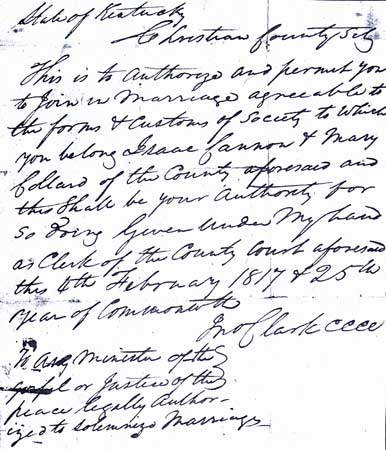 State of Kentucky
Christian County Sct
This is to authorize and permit you
to Join in Marriage agreeable to
the forms & Customs of Society to which
you belong Isaac Cannon & Mary
Collard of the County aforesaid and
this Shall be your Authority for
So doing Given under My hand
as Clerk of the County court aforesaid
this 4th February 1817 & 25th
year of Commonwth
Jno Clark CCCC
To Any Minister of the
gospel or Justice of the
peace legally Author-
ized to Solemnize Marriage